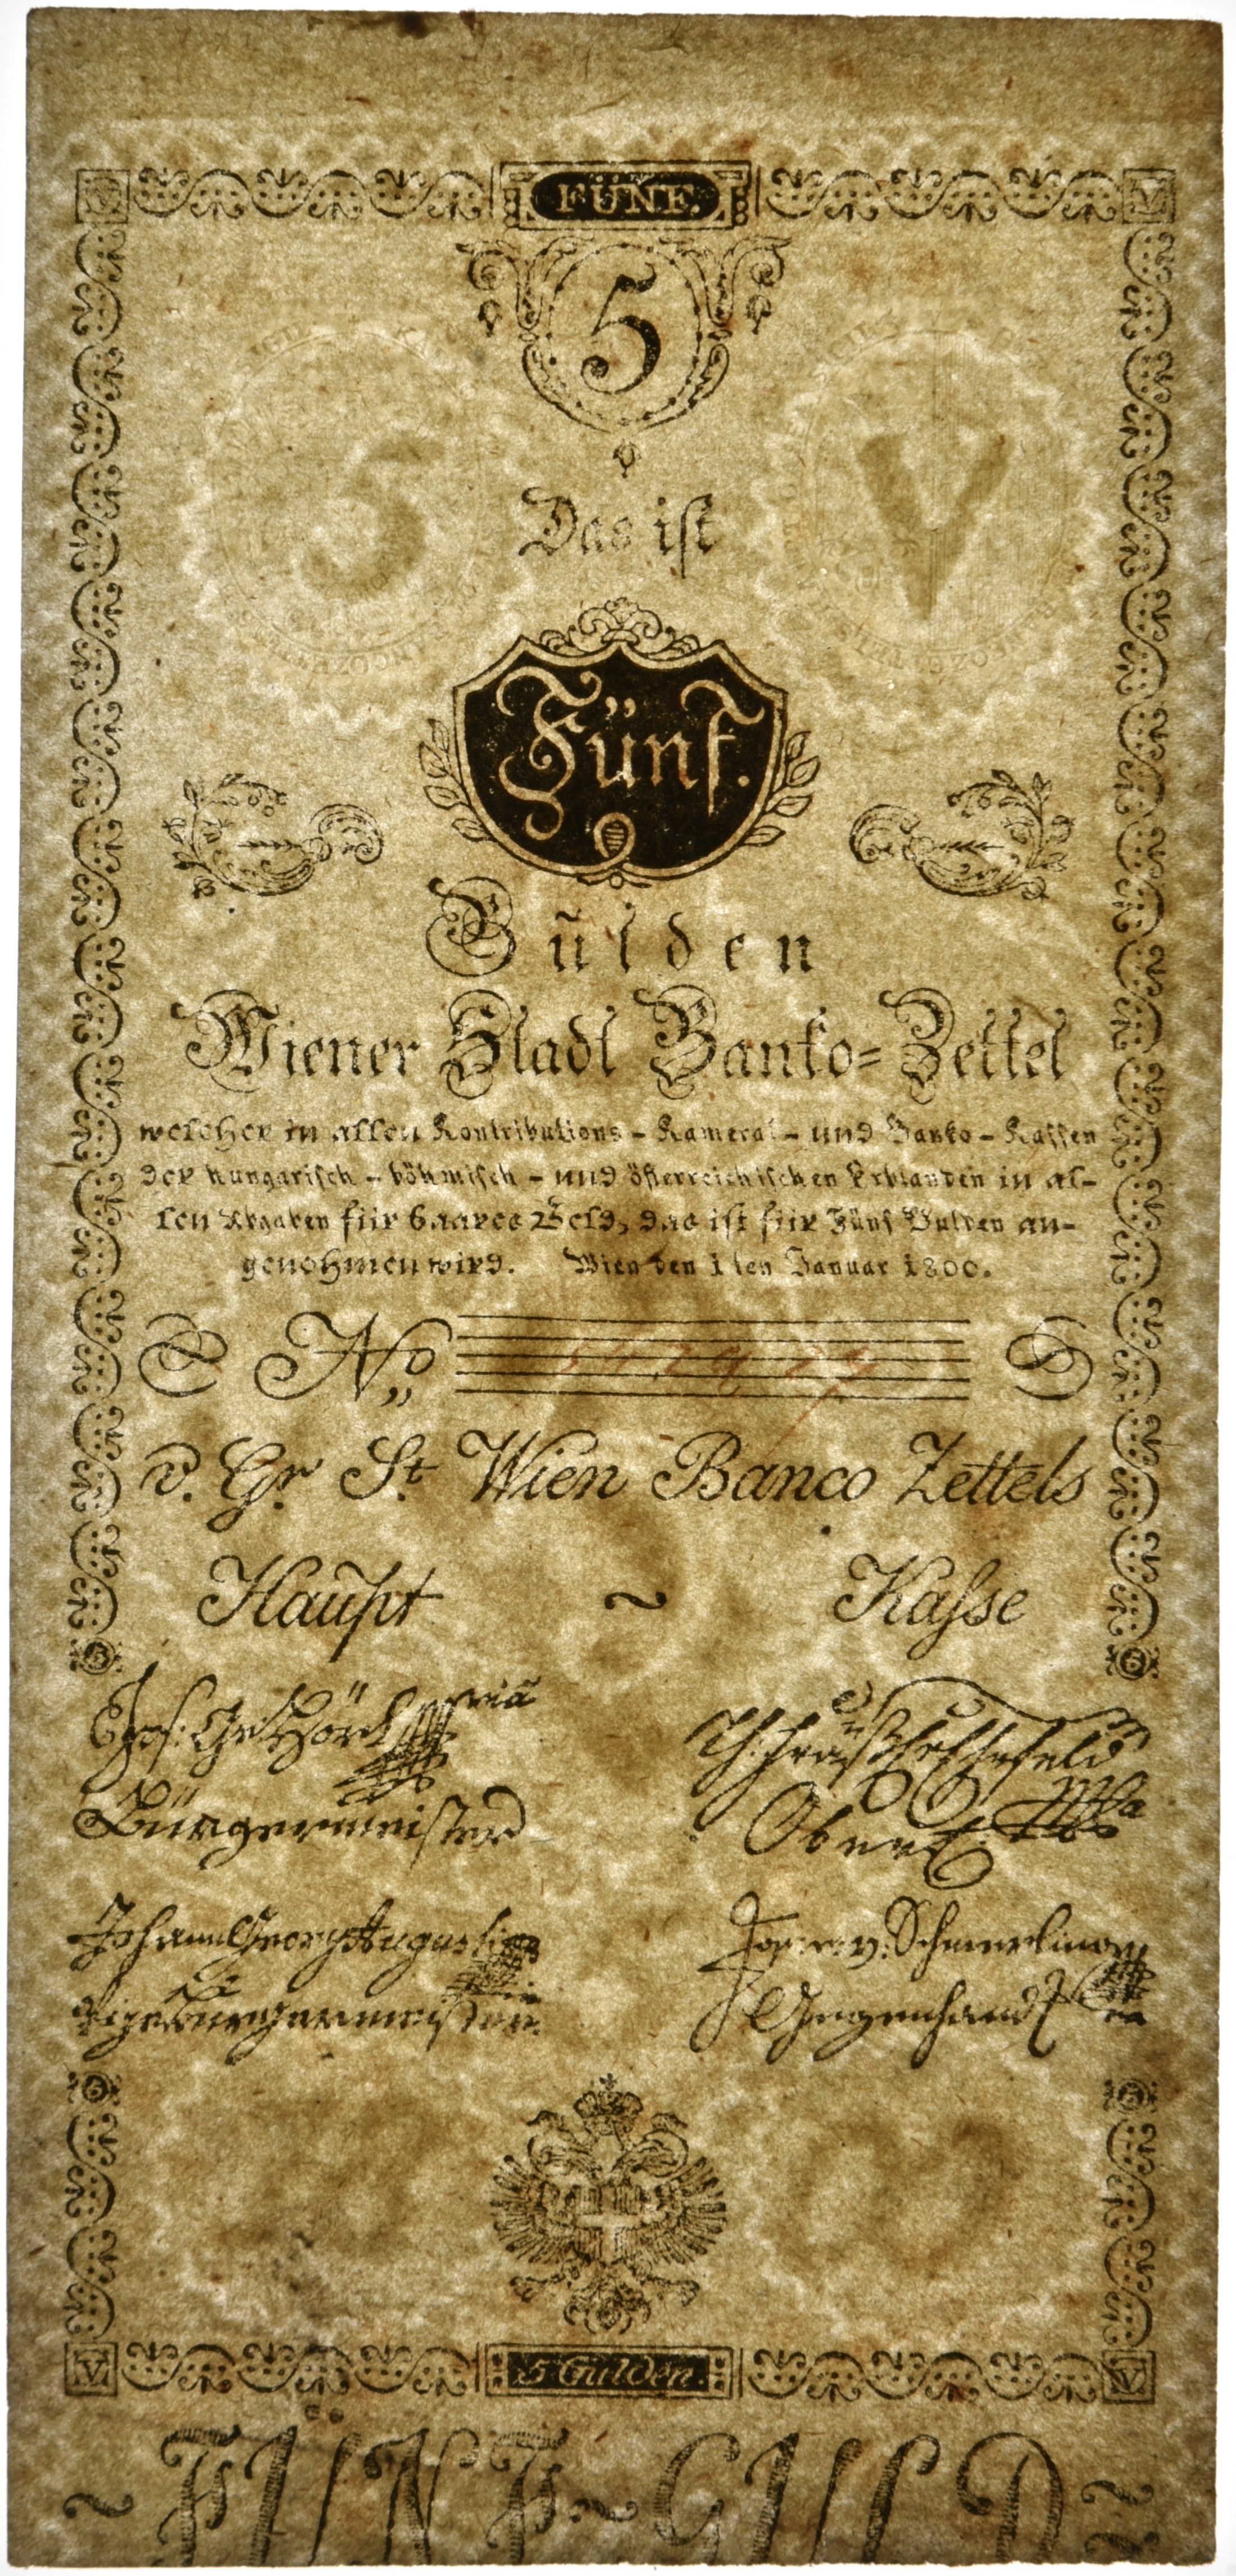 V FÜNF. V
5
5 V
Das ist
Fünf.
Gulden
Wiener Stadt Banko-Zettel
welcher in allen Kontributions - Kameral - und Banko - Kassen
der hungarisch - böhmisch - und österreichischen Erblanden in al-
len Abgaben für baares Geld, das ist für Fünf Gulden an-
genohmen wird. Wien den 1ten Januar 1800.
No
v. Gr. St. Wien Banco Zettels
Haupt ~ Kasse
5 5
Bürgermeister
Johann Georg Augusti
v. Schmerling
Gegenhand
5 5
V 5 Gulden V
~ FÜNF ~ GULD ~